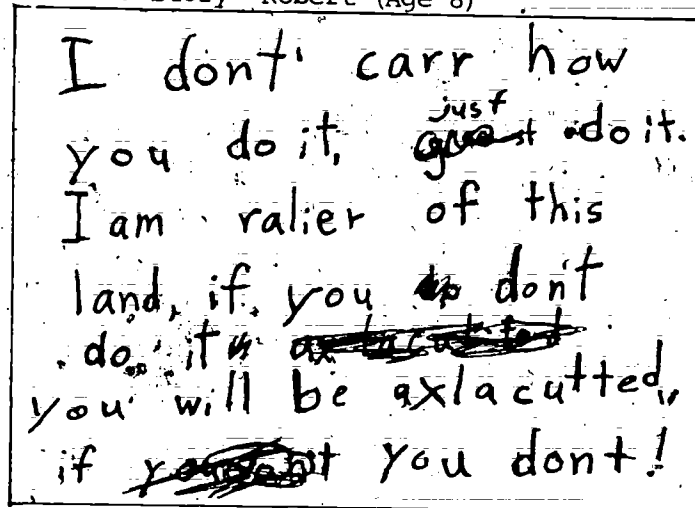 Story Robert (Age 8)
I dont' carr how
you do it, just do it.
I am ralier of this
land, if you don't
do it
you will be axlacutted,
if you dont!